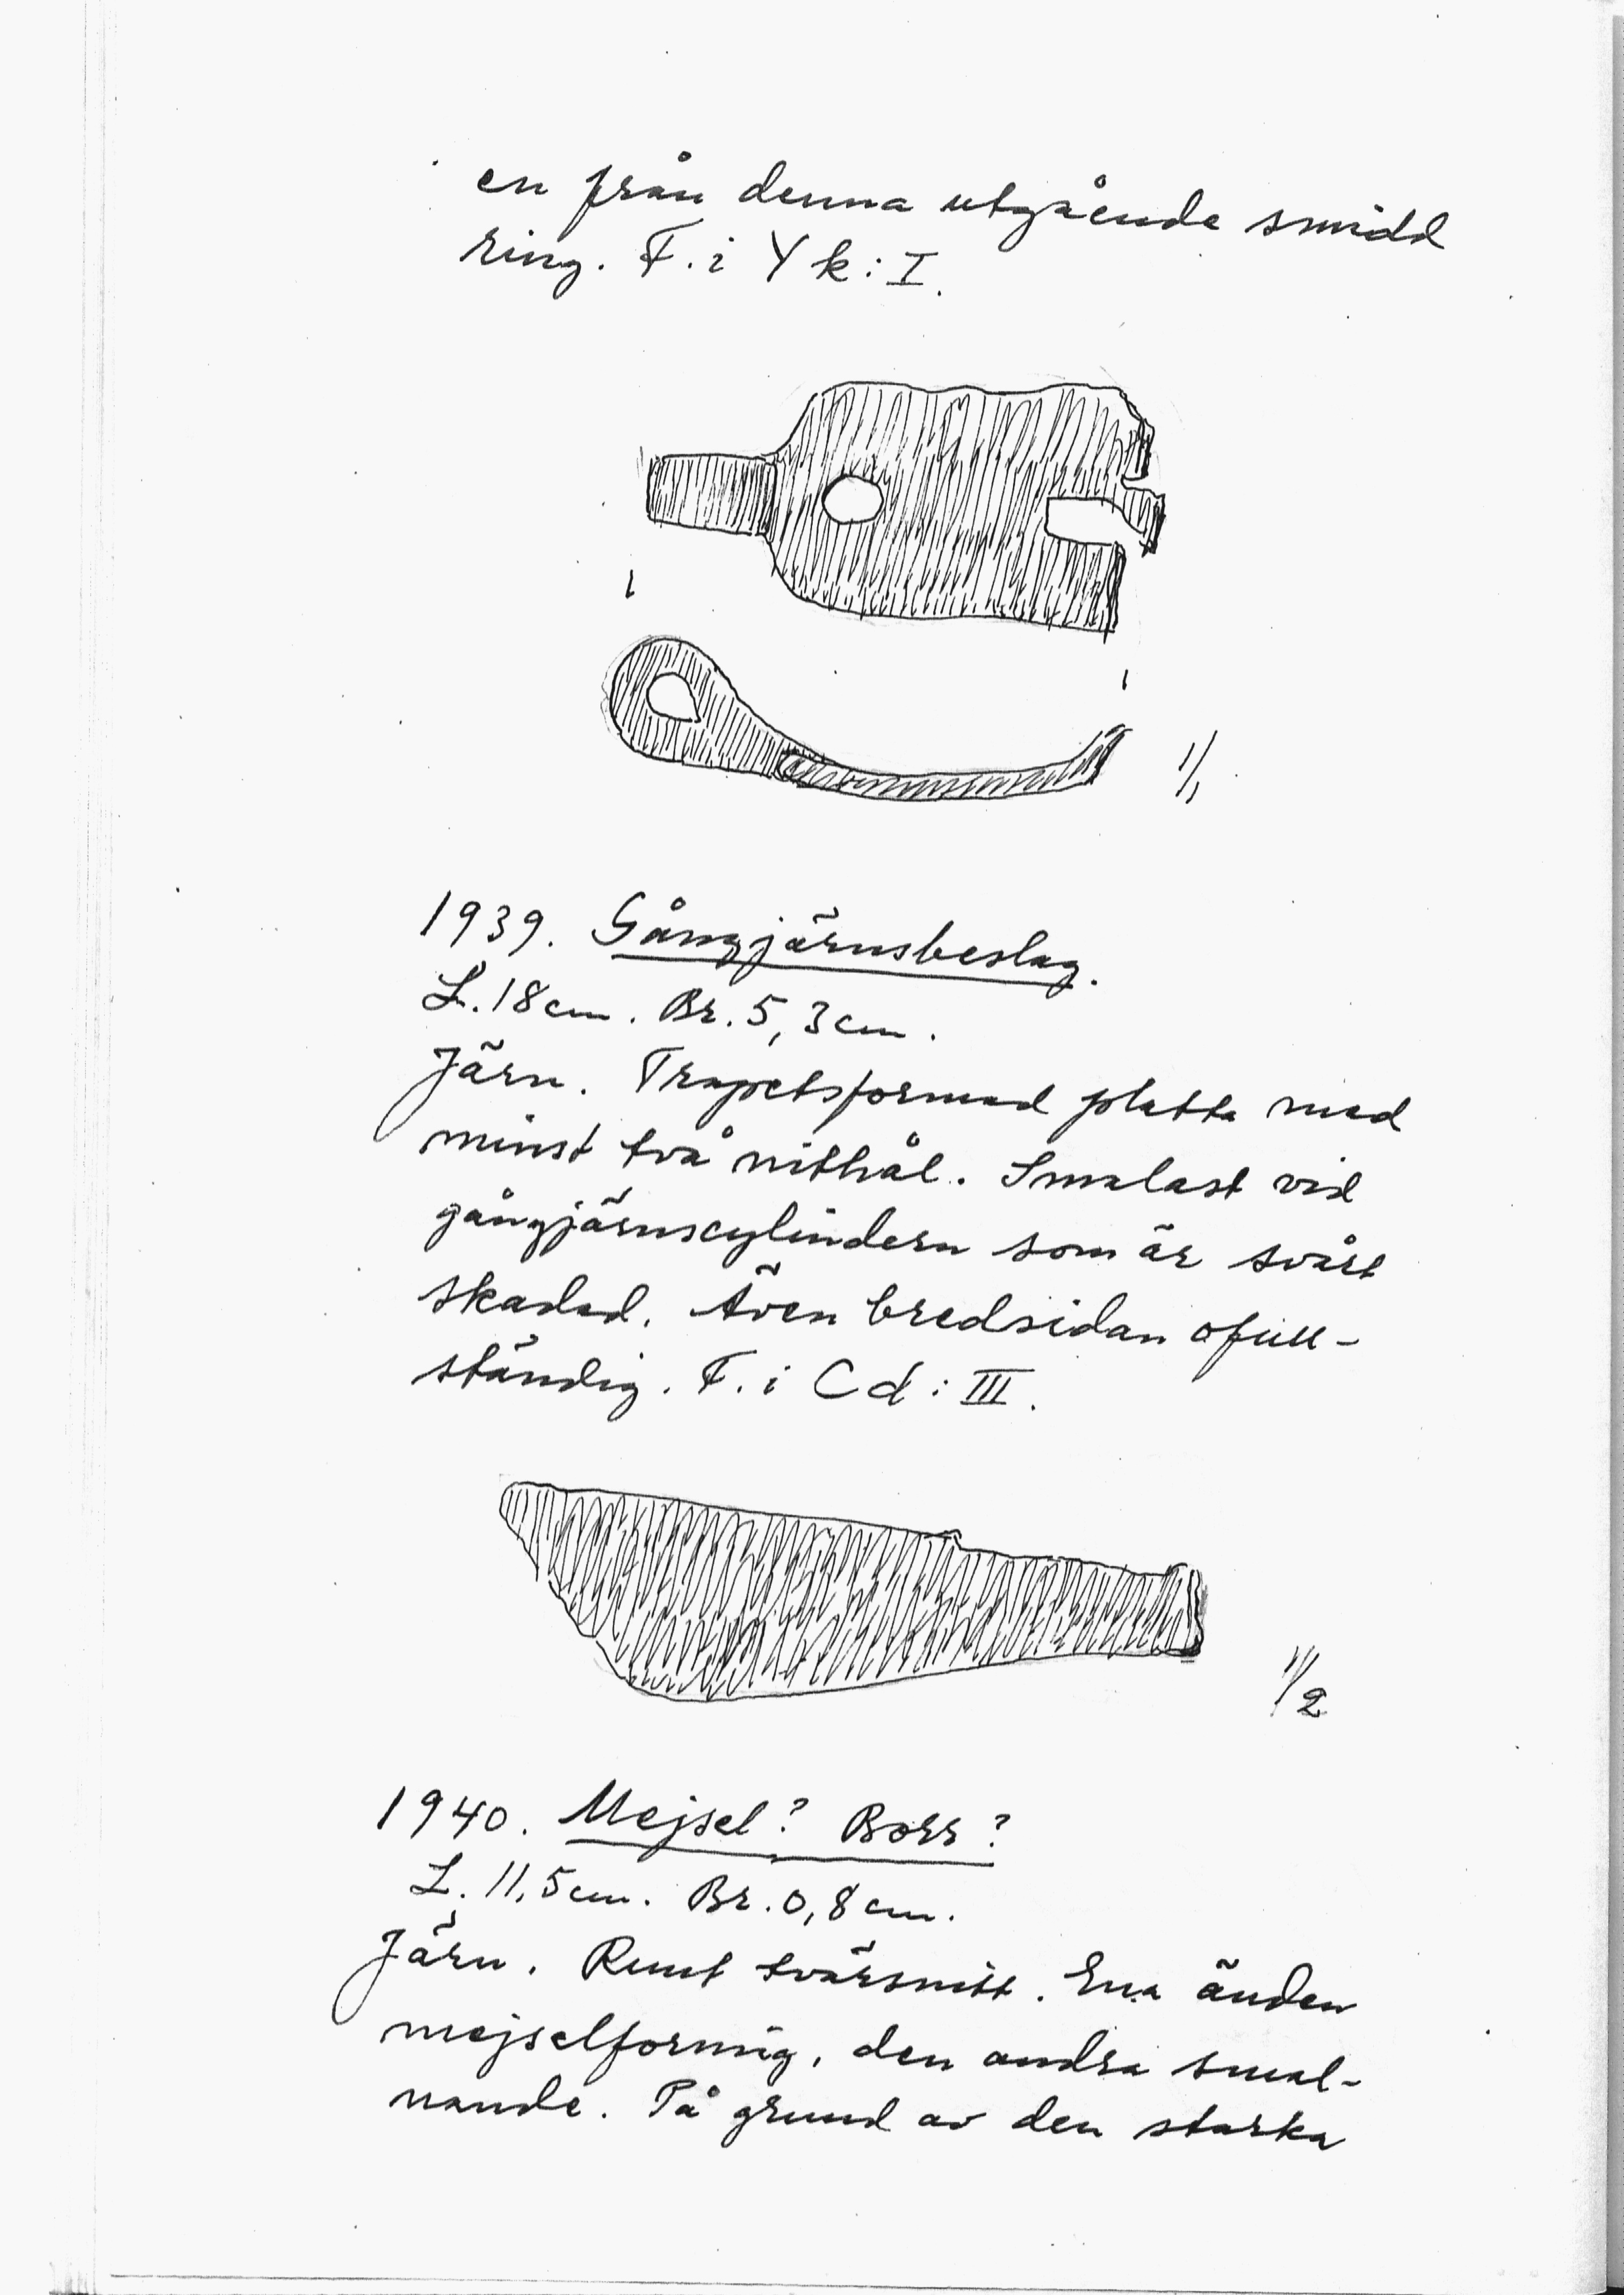 en från denna utgående smidd
ring. F. i Y k : I.
1/1
1939. Gångjärnsbeslag.
L. 18 cm. Br. 5,3 cm.
Järn. Trapetsformad platta med
minst två nithål. Smalast vid
gångjärnscylindern som är svårt
skadad. Även bredsidan ofull-
ständig. F. i C d : III.
1/2
1940. Mejsel? Borr?
L. 11,5 cm. Br. 0,8 cm.
Järn. Runt tvärsnitt. Ena änden
mejselformig, den andra smal-
nande. På grund av den starka